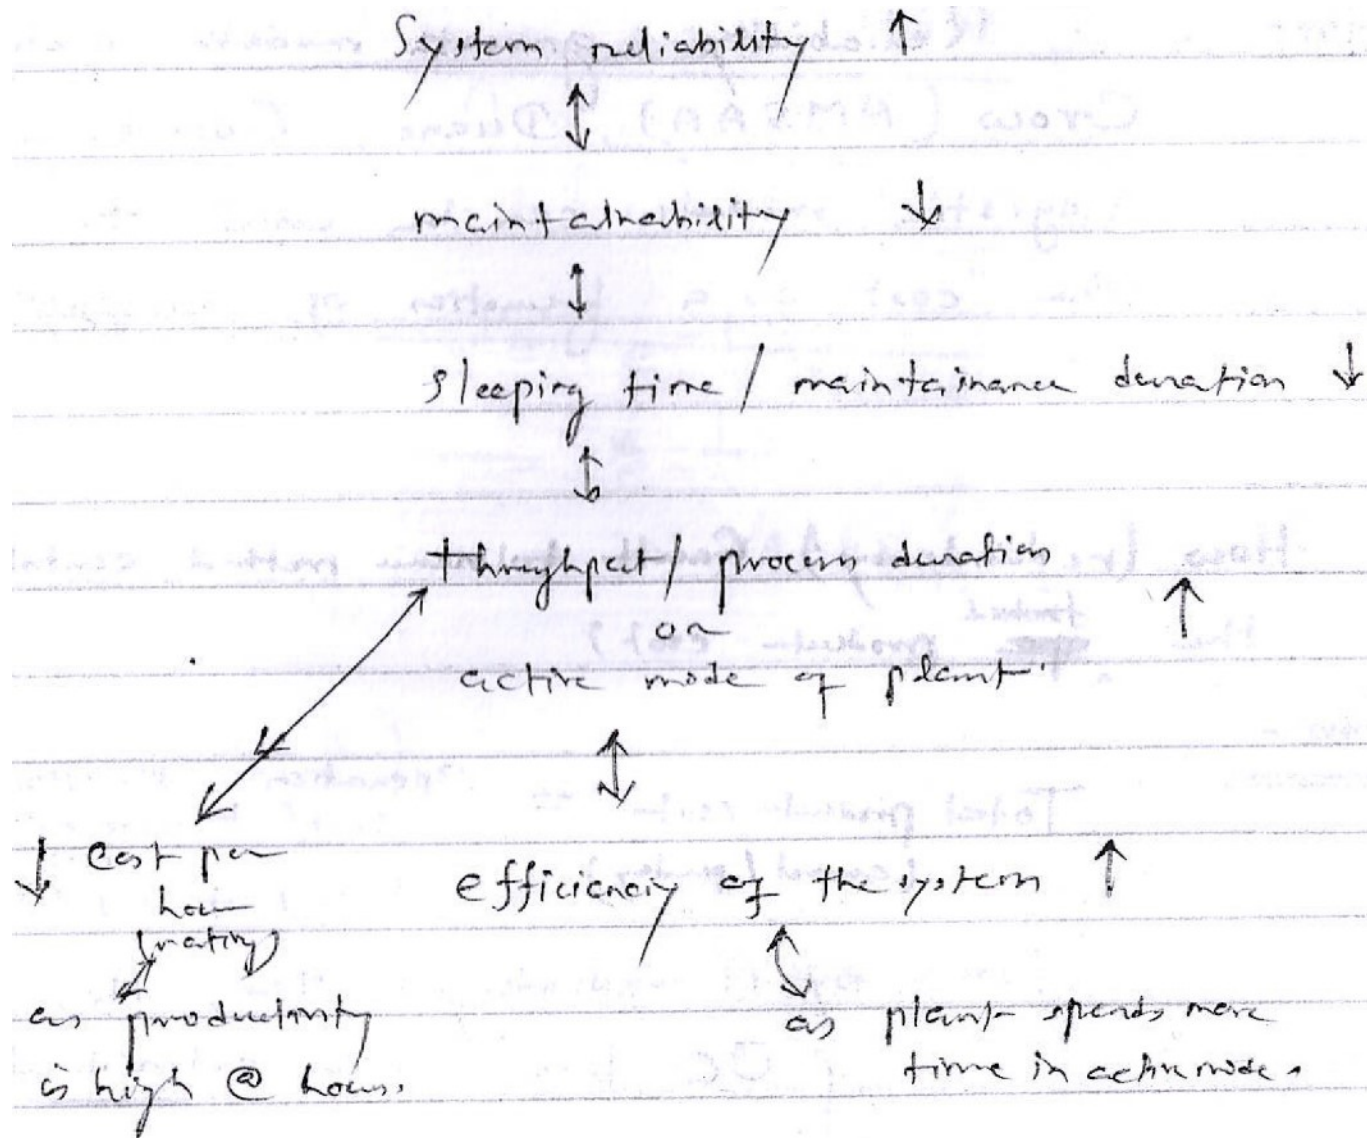 System reliability ↑
↕
maintainability ↓
↕
sleeping time / maintainance duration ↓
↕
throughput / process duration
or ↑
active mode of plant
↕
↓ Cost per
hour
(rating)
efficiency of the system ↑
as productivity
is high @ hour.
as plant spends more
time in active mode.